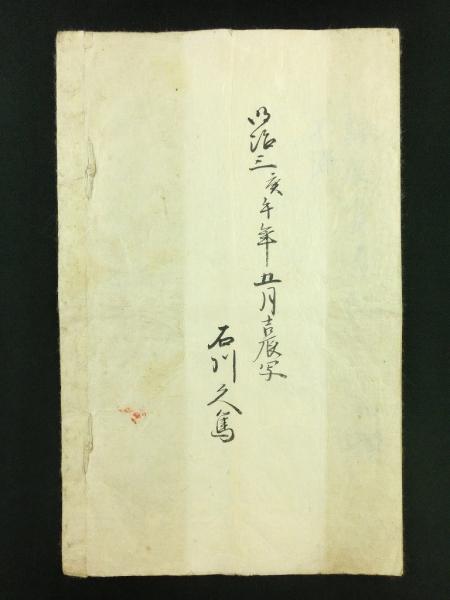 明治三庚午年五月吉辰写
石川久篤